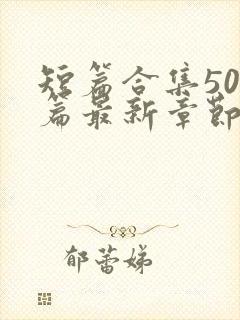 短篇合集50
篇最新章节
郁蕾娣